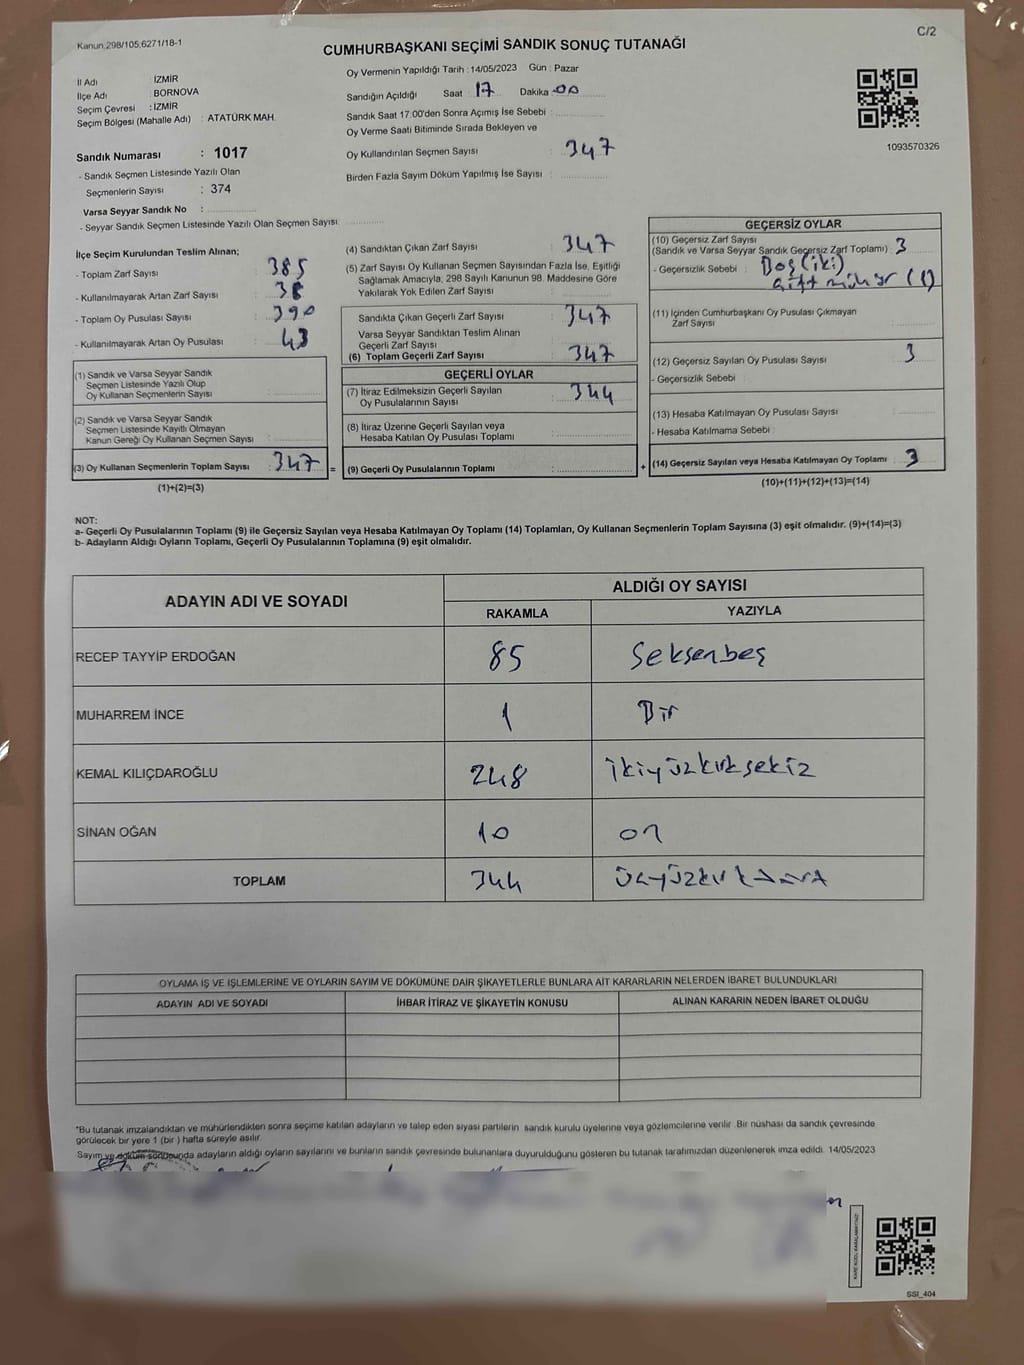 Kanun.298/105,6271/18-1
C/2
CUMHURBAŞKANI SEÇİMİ SANDIK SONUÇ TUTANAĞI
İl Adı : İZMİR
İlçe Adı : BORNOVA
Seçim Çevresi : İZMİR
Seçim Bölgesi (Mahalle Adı) : ATATÜRK MAH.
Sandık Numarası : 1017
- Sandık Seçmen Listesinde Yazılı Olan
Seçmenlerin Sayısı : 374
Varsa Seyyar Sandık No :
- Seyyar Sandık Seçmen Listesinde Yazılı Olan Seçmen Sayısı:
Oy Vermenin Yapıldığı Tarih : 14/05/2023 Gün : Pazar
Sandığın Açıldığı Saat : 17 Dakika : 00
Sandık Saat 17.00'den Sonra Açımış İse Sebebi :
Oy Verme Saati Bitiminde Sırada Bekleyen ve
Oy Kullandırılan Seçmen Sayısı : 347
Birden Fazla Sayım Döküm Yapılmış İse Sayısı :
1093570326
İlçe Seçim Kurulundan Teslim Alınan;
- Toplam Zarf Sayısı : 385
- Kullanılmayarak Artan Zarf Sayısı : 38
- Toplam Oy Pusulası Sayısı : 390
- Kullanılmayarak Artan Oy Pusulası : 43
(1) Sandık ve Varsa Seyyar Sandık
Seçmen Listesinde Yazılı Olup
Oy Kullanan Seçmenlerin Sayısı :
(2) Sandık ve Varsa Seyyar Sandık
Seçmen Listesinde Kayıtlı Olmayan
Kanun Gereği Oy Kullanan Seçmen Sayısı :
(3) Oy Kullanan Seçmenlerin Toplam Sayısı : 347 =
(1)+(2)=(3)
(4) Sandıktan Çıkan Zarf Sayısı : 347
(5) Zarf Sayısı Oy Kullanan Seçmen Sayısından Fazla İse, Eşitliği
Sağlamak Amacıyla, 298 Sayılı Kanunun 98. Maddesine Göre
Yakılarak Yok Edilen Zarf Sayısı :
Sandıkta Çıkan Geçerli Zarf Sayısı : 347
Varsa Seyyar Sandıktan Teslim Alınan
Geçerli Zarf Sayısı :
(6) Toplam Geçerli Zarf Sayısı : 347
GEÇERLİ OYLAR
(7) İtiraz Edilmeksizin Geçerli Sayılan
Oy Pusulalarının Sayısı : 344
(8) İtiraz Üzerine Geçerli Sayılan veya
Hesaba Katılan Oy Pusulası Toplamı :
(9) Geçerli Oy Pusulalarının Toplamı : +
GEÇERSİZ OYLAR
(10) Geçersiz Zarf Sayısı
(Sandık ve Varsa Seyyar Sandık Geçersiz Zarf Toplamı) : 3
- Geçersizlik Sebebi : Boş (iki)
çift mühür (1)
(11) İçinden Cumhurbaşkanı Oy Pusulası Çıkmayan
Zarf Sayısı :
(12) Geçersiz Sayılan Oy Pusulası Sayısı : 3
- Geçersizlik Sebebi :
(13) Hesaba Katılmayan Oy Pusulası Sayısı :
- Hesaba Katılmama Sebebi :
(14) Geçersiz Sayılan veya Hesaba Katılmayan Oy Toplamı : 3
(10)+(11)+(12)+(13)=(14)
NOT:
a- Geçerli Oy Pusulalarının Toplamı (9) ile Geçersiz Sayılan veya Hesaba Katılmayan Oy Toplamı (14) Toplamları, Oy Kullanan Seçmenlerin Toplam Sayısına (3) eşit olmalıdır. (9)+(14)=(3)
b- Adayların Aldığı Oyların Toplamı, Geçerli Oy Pusulalarının Toplamına (9) eşit olmalıdır.
ADAYIN ADI VE SOYADI ALDIĞI OY SAYISI
RAKAMLA YAZIYLA
RECEP TAYYİP ERDOĞAN 85 Seksenbeş
MUHARREM İNCE 1 Bir
KEMAL KILIÇDAROĞLU 248 ikiyüzkırksekiz
SİNAN OĞAN 10 on
TOPLAM 344
OYLAMA İŞ VE İŞLEMLERİNE VE OYLARIN SAYIM VE DÖKÜMÜNE DAİR ŞİKAYETLERLE BUNLARA AİT KARARLARIN NELERDEN İBARET BULUNDUKLARI
ADAYIN ADI VE SOYADI İHBAR İTİRAZ VE ŞİKAYETİN KONUSU ALINAN KARARIN NEDEN İBARET OLDUĞU
*Bu tutanak imzalandıktan ve mühürlendikten sonra seçime katılan adayların ve talep eden siyasi partilerin sandık kurulu üyelerine veya gözlemcilerine verilir. Bir nüshası da sandık çevresinde
görülecek bir yere 1 (bir ) hafta süreyle asılır.
Sayım ve döküm sonucunda adayların aldığı oyların sayılarını ve bunların sandık çevresinde bulunanlara duyurulduğunu gösteren bu tutanak tarafımızdan düzenlenerek imza edildi. 14/05/2023
SSI_404